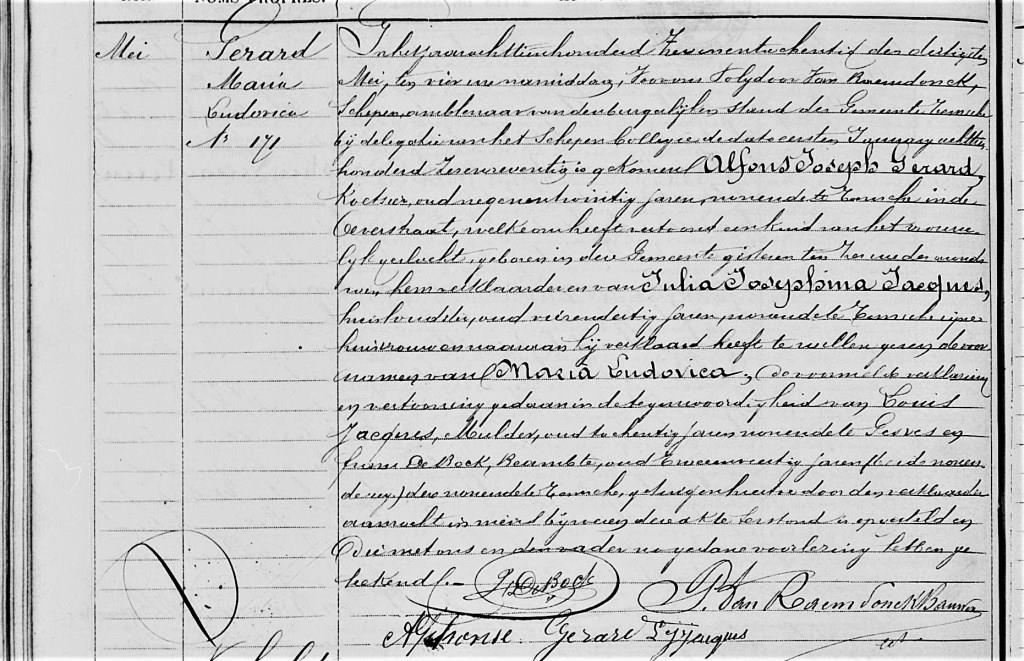 NOMS PROPRES.
Mei
Gerard
Maria
Ludovica
No 171
In het jaar achttien honderd zevenentachentig den dertigsten
Mei, ten vier ure namiddag, Voor ons Polydoor Van Raemdonck,
Schepen, ambtenaar van den burgerlijken stand der Gemeente Temsche
bij delegatie van het Schepen Collegie de dato eersten January achttien
honderd zesenzeventig is gekomen Alfons Joseph Gerard,
Koetsier, oud negenentwintig jaren, wonende te Temsche in de
Oeverstraat, welke ons heeft vertoond een kind van het vrouwe
lyk geslacht, geboren in dese Gemeente gisteren ten zes ure des avonds
van hem verklaarder en van Julia Josephina Jacques,
huishoudster, oud vierendertig jaren, wonende te Temsche zijne
huisvrouw en waaraan hij verklaard heeft te willen geven de voor
namen van Maria Ludovica, de voormelde verklaring
en vertooning gedaan in de tegenwoordigheid van Louis
Jacques, Mulder, oud tachentig jaren wonende te Gesves en
frans De Bock, Beambte, oud tweeenveertig jaren
wonende te Temsche, getuigen hiertoe door den verklaarder
aanzocht in wiens bywezen deze akte terstond is opgesteld en
Die met ons en den vader na gedane voorlezing hebben ge
teekend.
F. De Bock
P. Van Raemdonck Bauwens
Alphonse Gerard L. J. Jacques